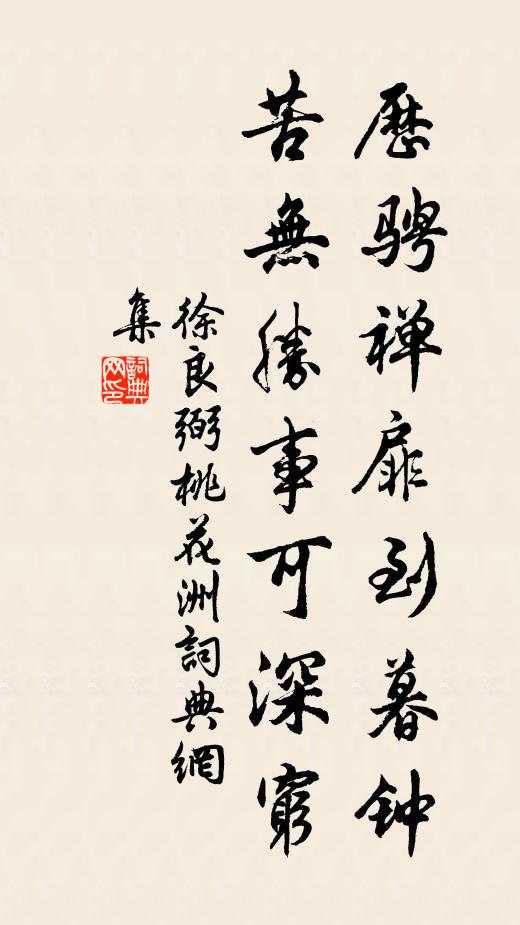 歷骋禅扉到暮钟
苦無勝事可深窮
徐良弼桃花洲詞典網
集
詞典网印